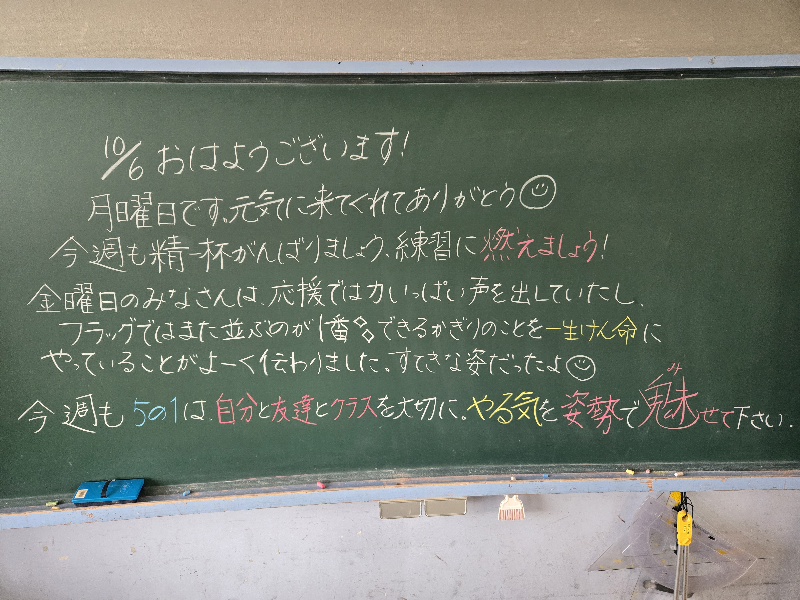 10/6 おはようございます!
月曜日です。元気に来てくれてありがとう
今週も精一杯がんばりましょう、練習に燃えましょう!
金曜日のみなさんは、応援では力いっぱい声を出していたし、
フラッグではまた並ぶのが1番多できるかぎりのことを一生けん命に
やっていることがよーく伝わりました。すてきな姿だったよ
今週も 5の1は、自分と友達とクラスを大切に。やる気を姿勢で魅せて下さい。
み